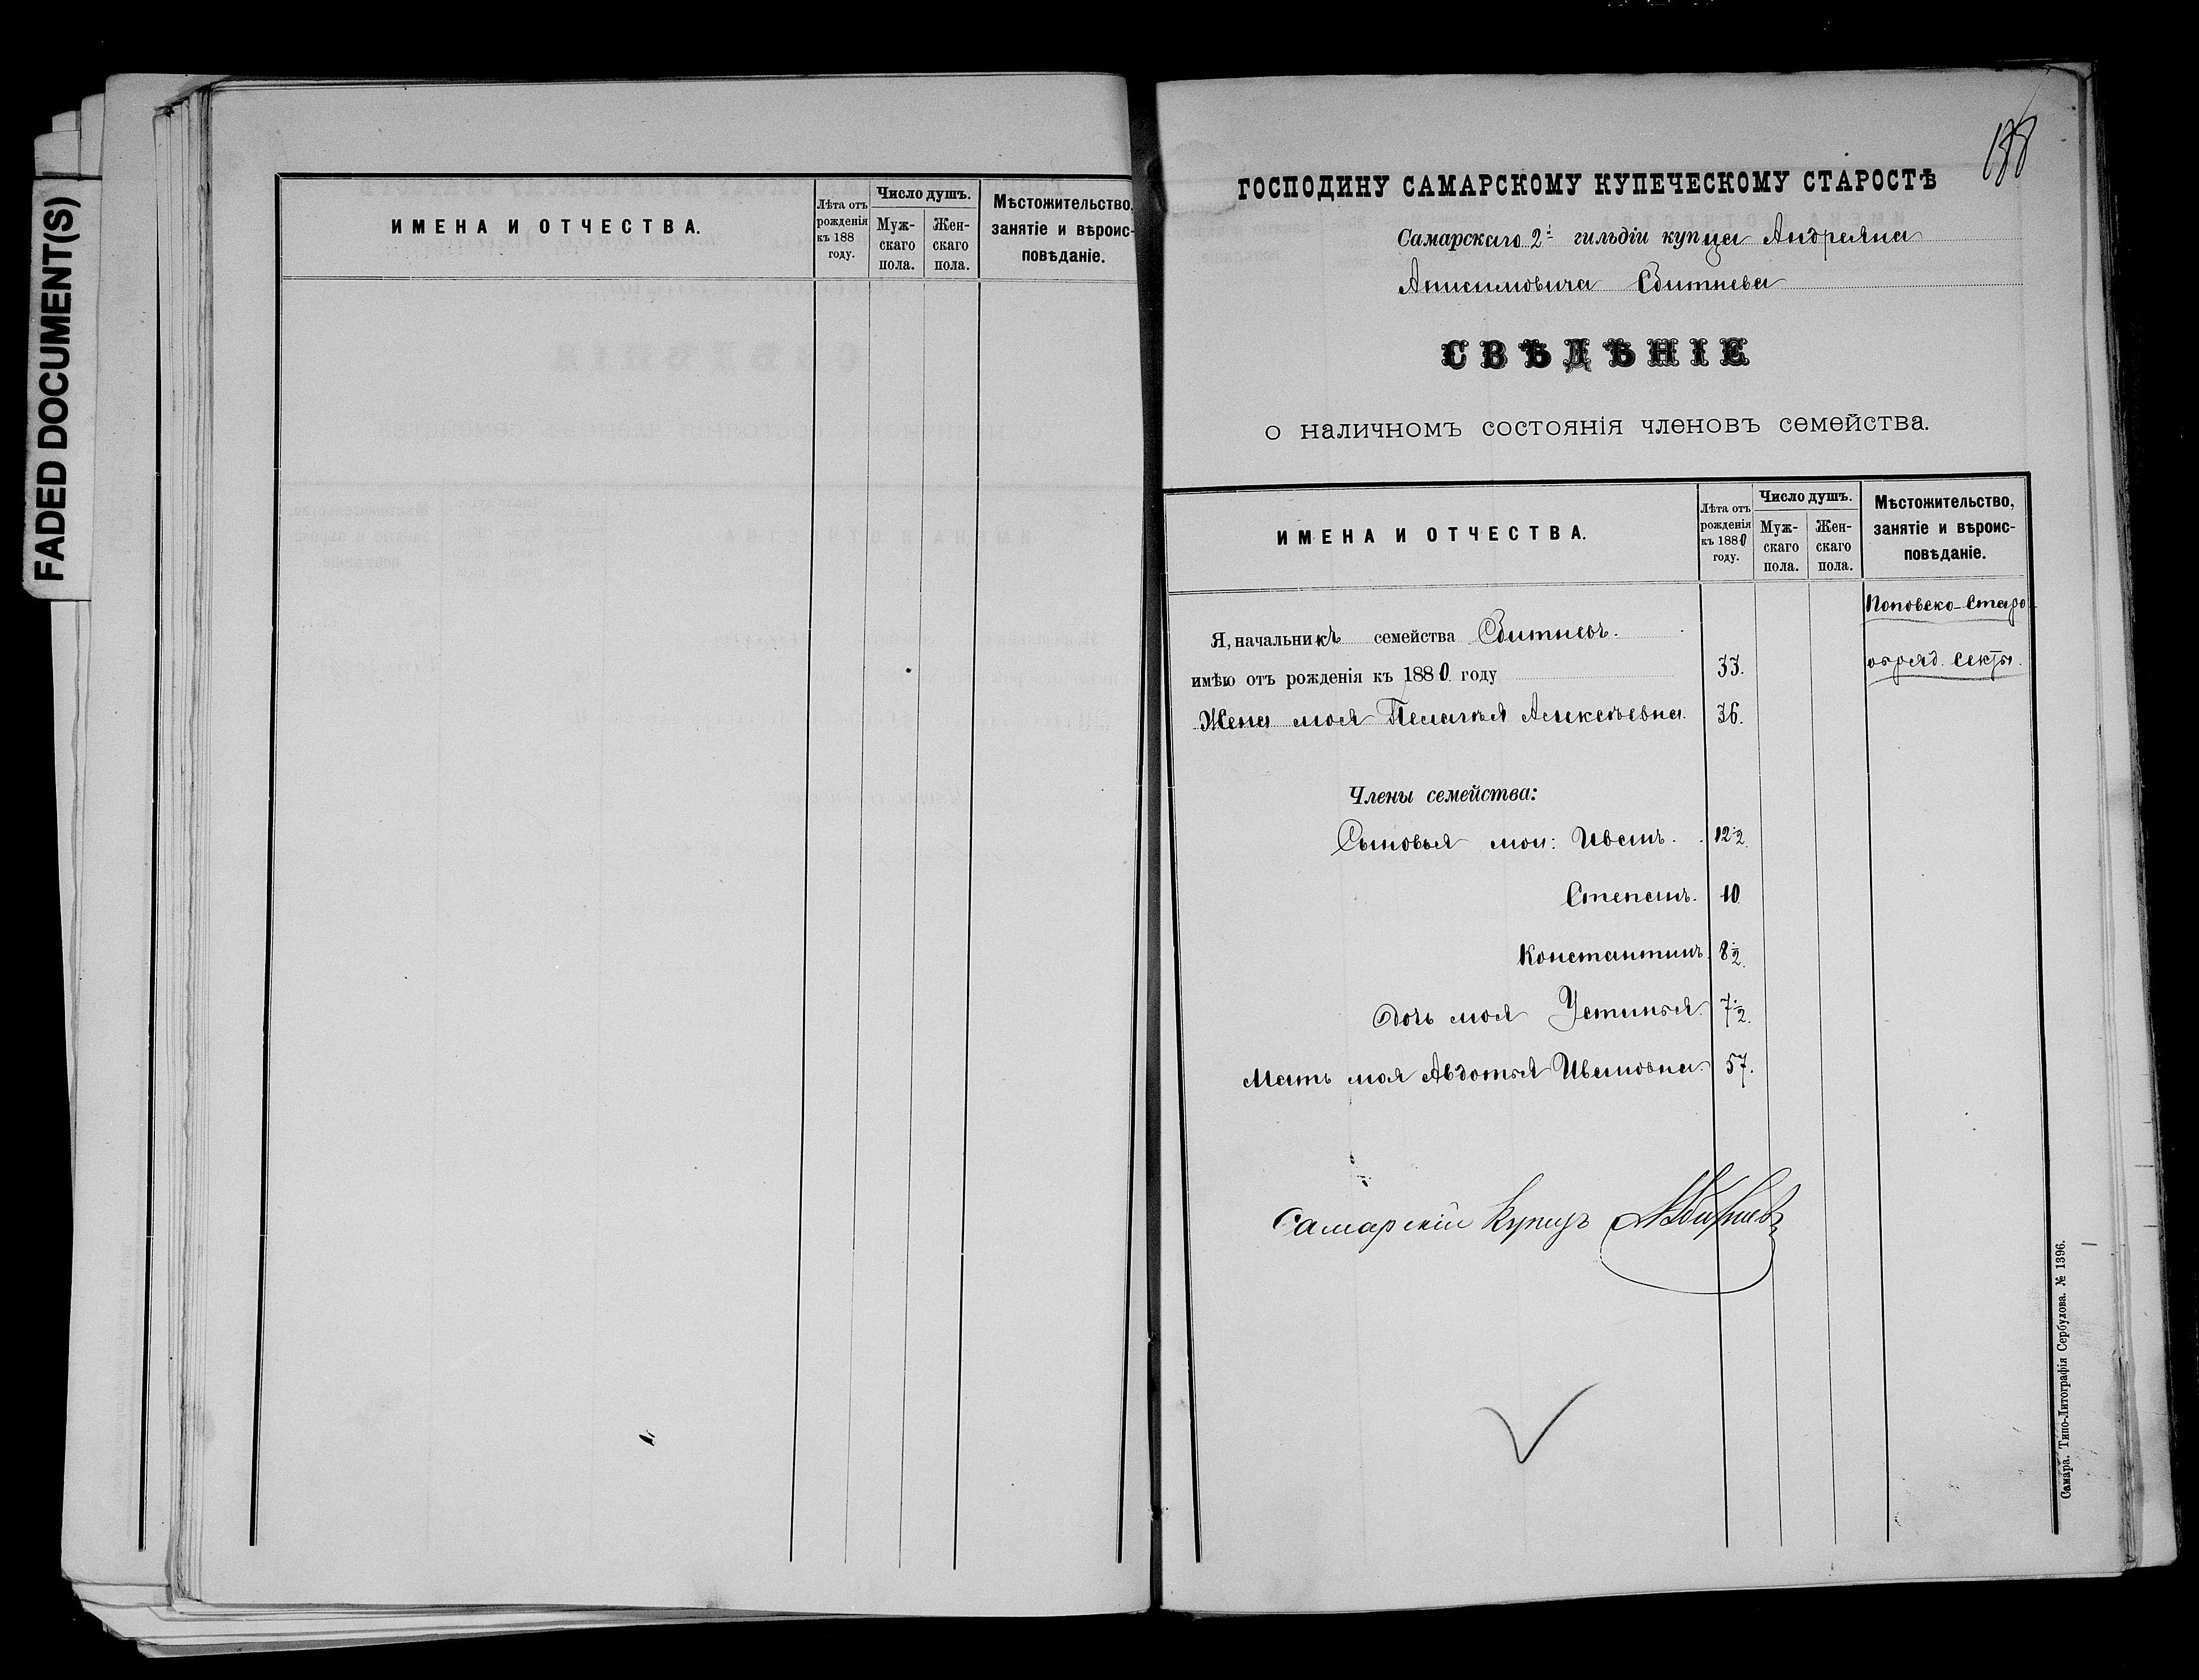 FADED DOCUMENT(S)
ИМЕНА И ОТЧЕСТВА.
Лѣта отъ рожденія къ 188 году.
Число душъ.
Мужскаго пола.
Женскаго пола.
Мѣстожительство, занятіе и вѣроисповѣданіе.
188
ГОСПОДИНУ САМАРСКОМУ КУПЕЧЕСКОМУ СТАРОСТѢ
Самарскаго 2й гильдіи купца Андреяна
Анисимовича Сдитнева
СВѢДѢНІЕ
о наличномъ состоянія членовъ семейства.
ИМЕНА И ОТЧЕСТВА.
Лѣта отъ рожденія къ 1880 году.
Число душъ.
Мужскаго пола.
Женскаго пола.
Мѣстожительство, занятіе и вѣроисповѣданіе.
Поповско-старо
Я, начальникъ семейства Сдитневъ.
обряд. секты.
имѣю отъ рожденія къ 1880 году 33.
Жена моя Пелагѣя Алексѣевна. 36.
Члены семейства:
Сыновья мои: Иванъ. 12 1/2.
Степанъ. 10
Константинъ. 8 1/2.
дочь моя Устинья. 7 1/2.
Мать моя Авдотья Ивановна. 57.
Самарскій Купецъ
Самара. Типо-Литографія Сербулова. № 1396.